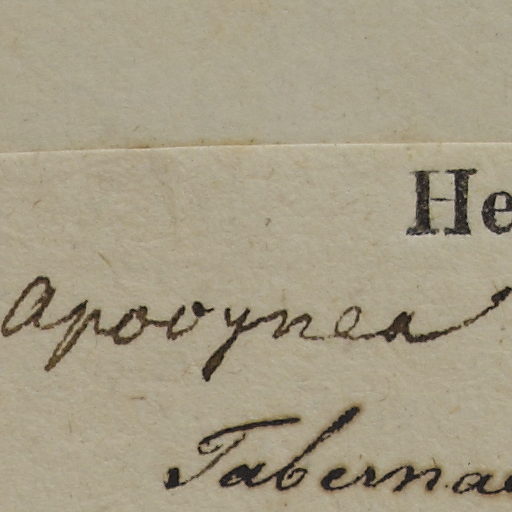 He
Apocynea
Taberna